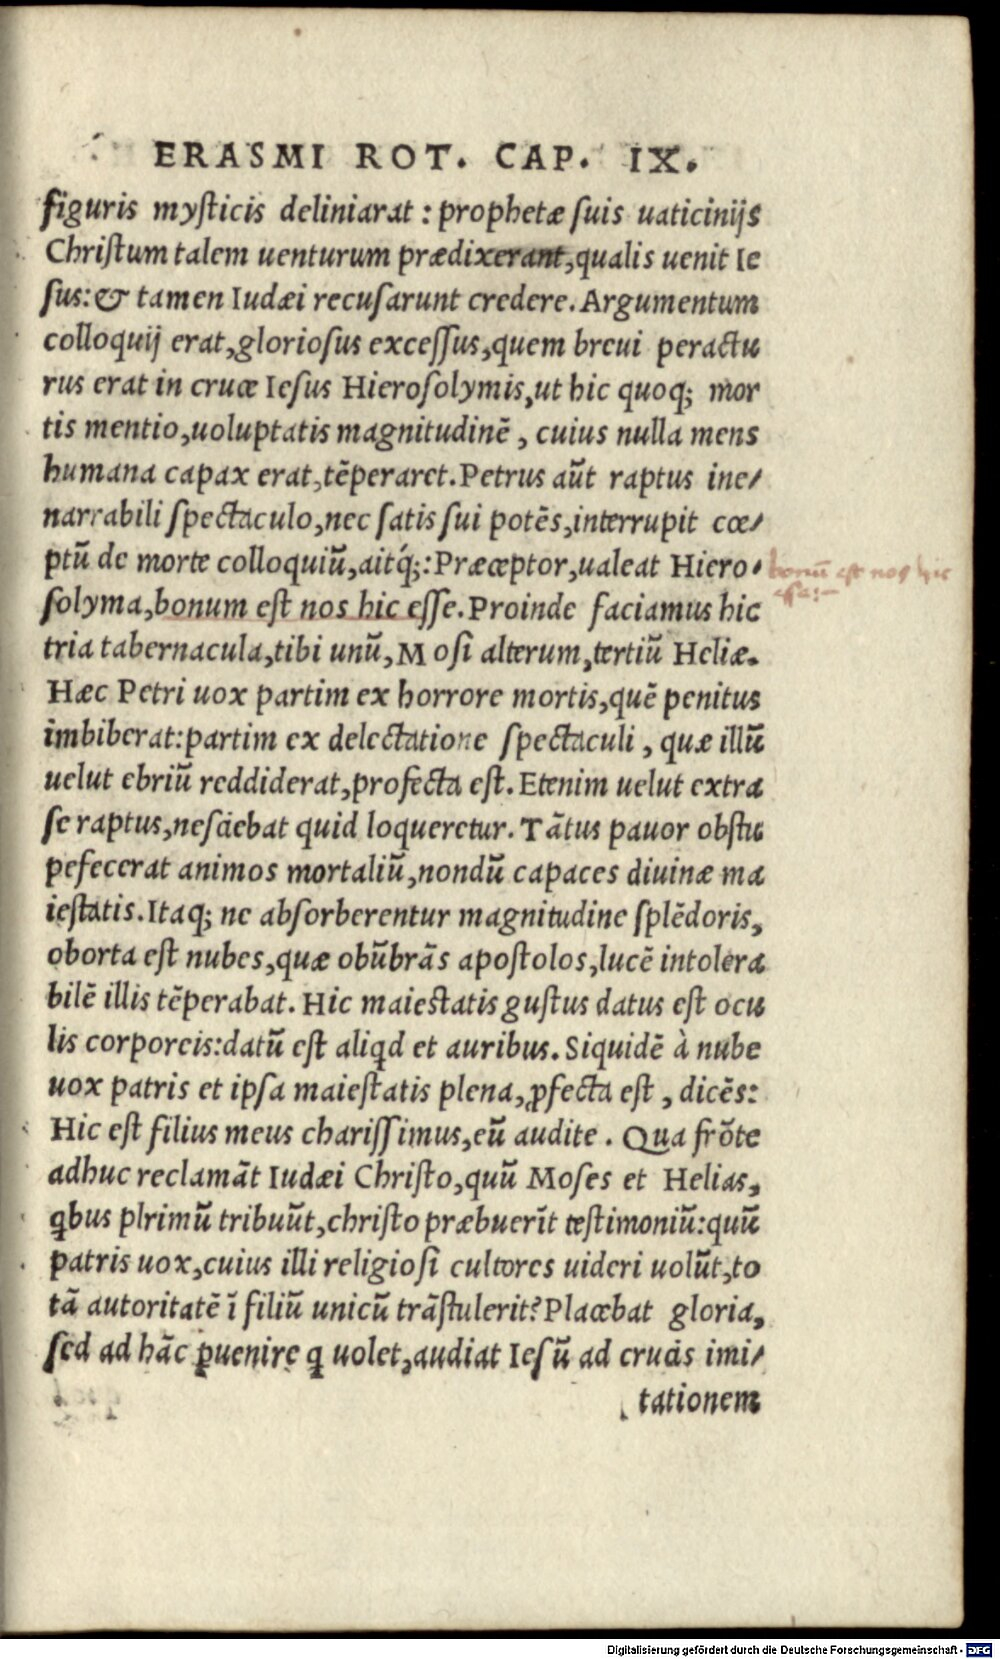 ERASMI ROT. CAP. IX.
figuris mysticis deliniarat : prophetæ suis uaticinijs
Christum talem uenturum prædixerant, qualis uenit Ie
sus: & tamen Iudæi recusarunt credere. Argumentum
colloquij erat, gloriosus excessus, quem breui peractu
rus erat in cruce Iesus Hierosolymis, ut hic quoq; mor
tis mentio, uoluptatis magnitudinē , cuius nulla mens
humana capax erat, tēperaret. Petrus aūt raptus ine/
narrabili spectaculo, nec satis sui potēs, interrupit cœ/
ptū de morte colloquiū, aitq́;: Præceptor, ualeat Hiero/
solyma, bonum est nos hic esse. Proinde faciamus hic
tria tabernacula, tibi unū, Mosi alterum, tertiū Heliæ.
Hæc Petri uox partim ex horrore mortis, quē penitus
imbiberat: partim ex delectatione spectaculi , quæ illū
uelut ebriū reddiderat, profecta est. Etenim uelut extra
se raptus, nesciebat quid loqueretur. Tātus pauor obstu
pefecerat animos mortaliū, nondū capaces diuinæ ma
iestatis. Itaq; ne absorberentur magnitudine splēdoris,
oborta est nubes, quæ obūbrās apostolos, lucē intolera
bilē illis tēperabat. Hic maiestatis gustus datus est ocu
lis corporeis: datū est aliqd et auribus. Siquidē à nube
uox patris et ipsa maiestatis plena, ꝓfecta est , dicēs:
Hic est filius meus charissimus, eū audite . Qua frōte
adhuc reclamāt Iudæi Christo, quū Moses et Helias,
qbus plrimū tribuūt, christo præbuerīt testimoniū: quū
patris uox, cuius illi religiosi cultores uideri uolūt, to
tā autoritatē ī filiū unicū trāstulerit? Placebat gloria,
sed ad hāc ꝑuenire q uolet, audiat Iesū ad crucis imi/
tationem
bonū est nos hic
esse:
Digitalisierung gefördert durch die Deutsche Forschungsgemeinschaft - DFG